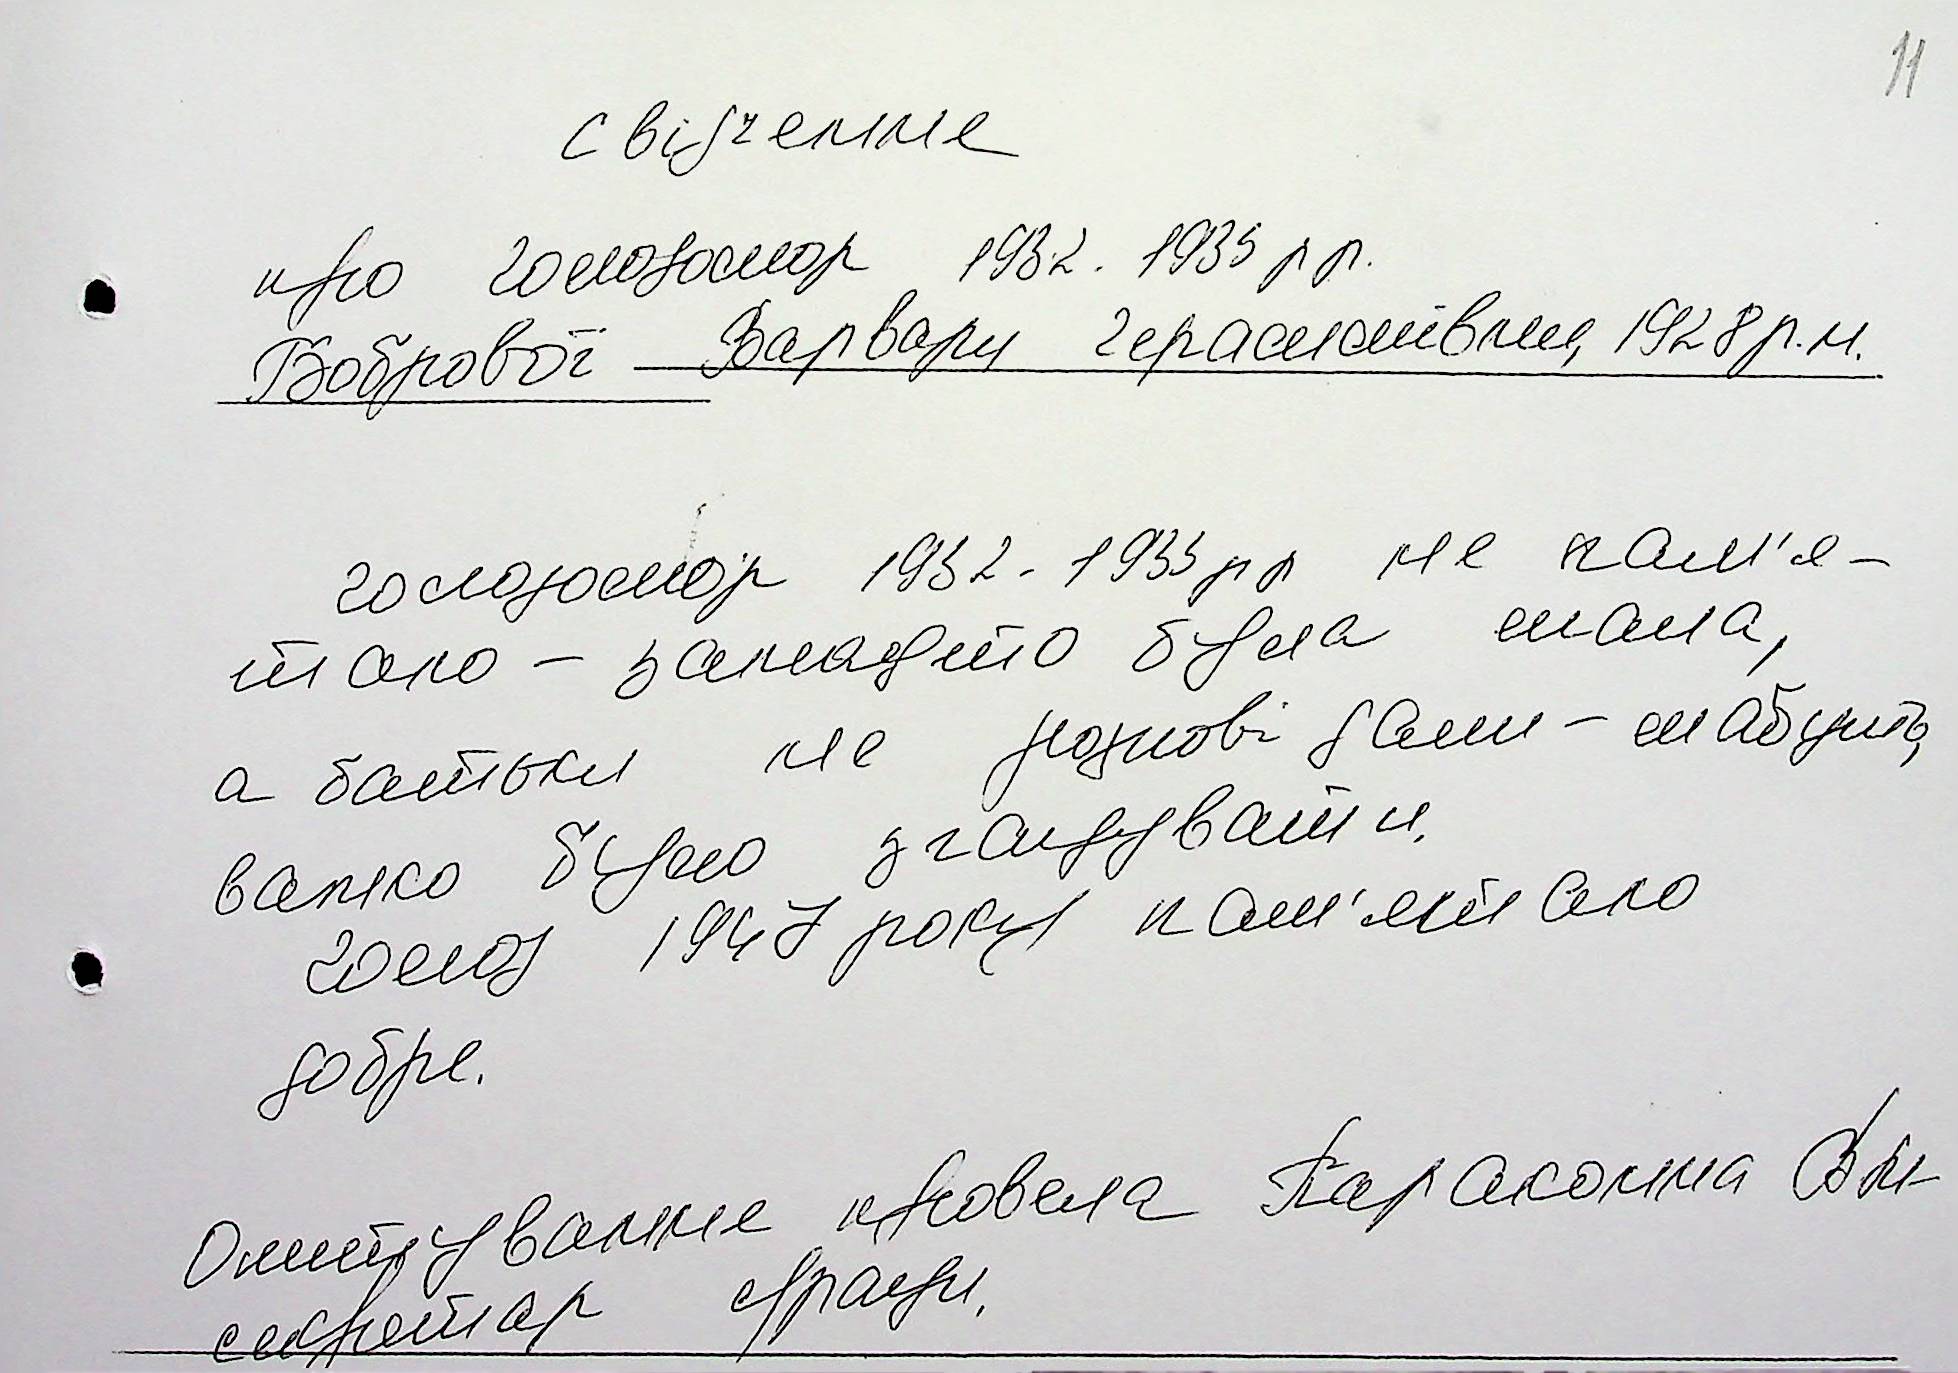 11
Свідчення
про голодомор 1932-1933 рр.
Бобрової Варвари Герасимівни, 1928 р.н.
Голодомор 1932-1933 рр не пам'я-
таю – занадто була мала,
а батьки не розповідали – мабуть,
важко було згадувати.
Голод 1947 року пам'ятаю
добре.
Опитування провела Параконна В.М-
секретар с/ради.